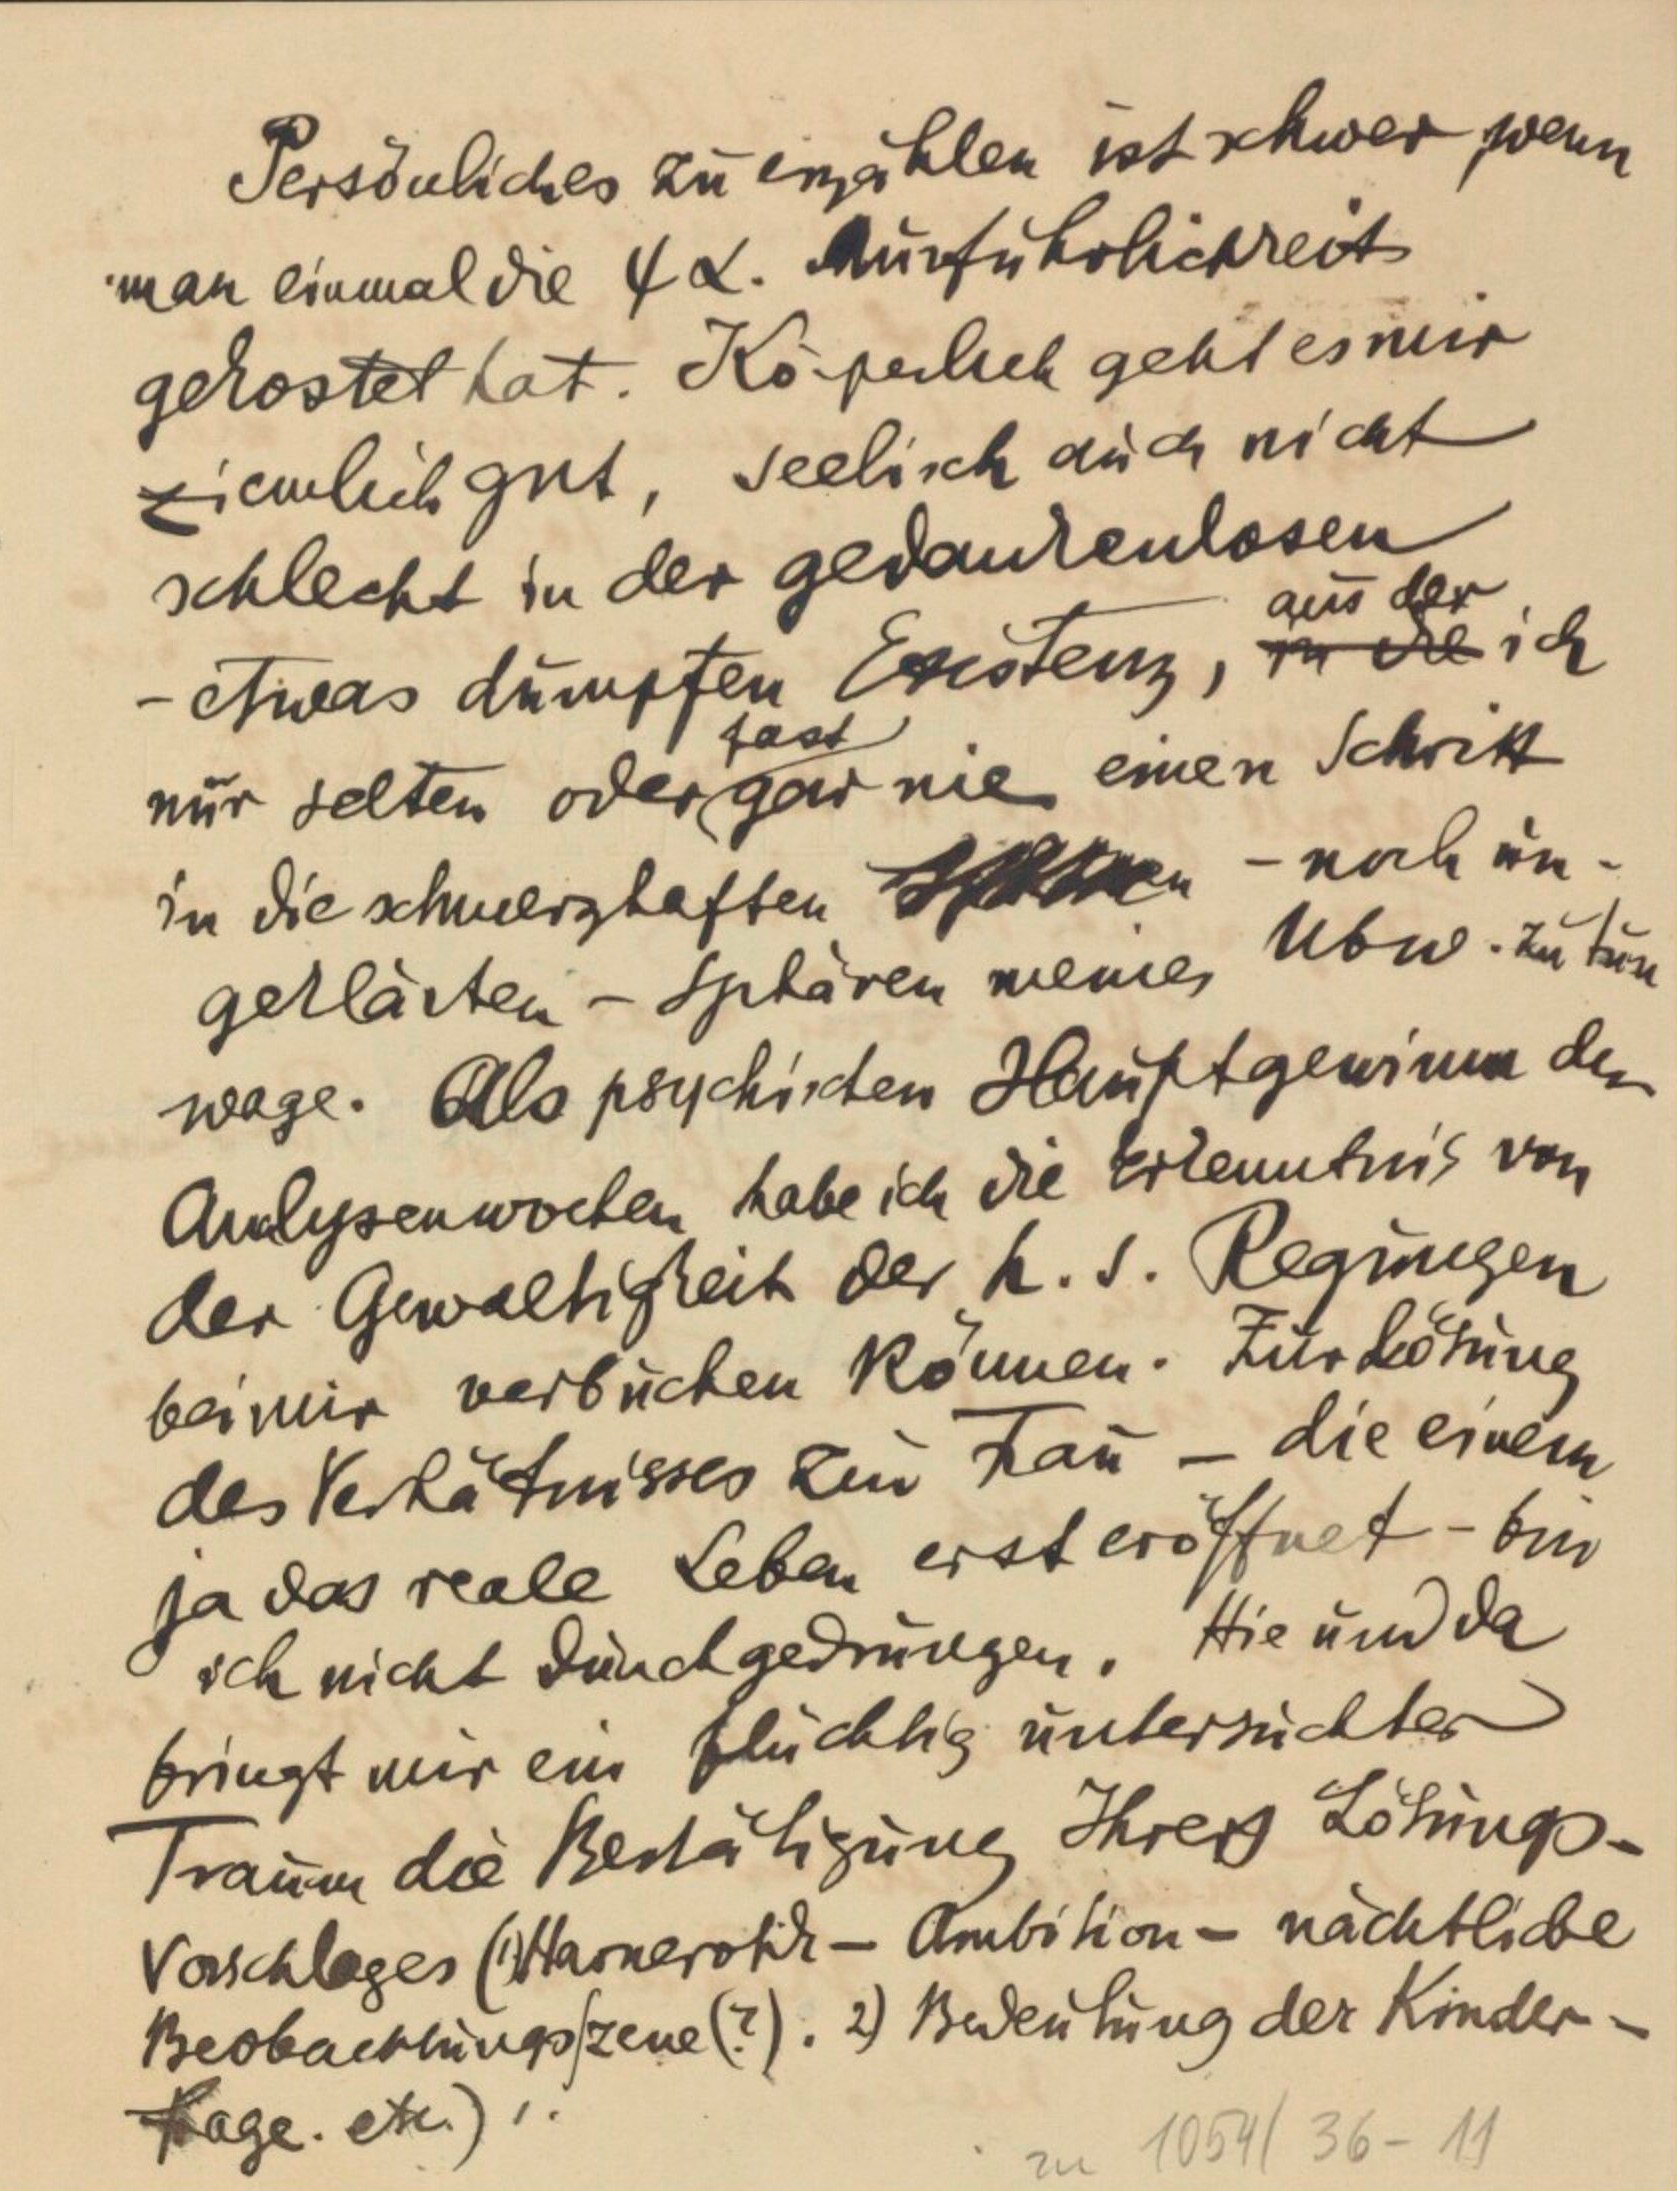 Persönliches zu erzählen ist schwer, wenn
man einmal die ψα. Ausführlichkeit
gekostet hat. Körperlich geht es mir
ziemlich gut, seelisch auch nicht
schlecht in der gedankenlosen
aus der
- etwas dumpfen Existenz, in die ich
fast
nur selten oder gar nie einen Schritt
in die schmerzhaften - noch un-
geklärten - Sphären meines Ubw. zu tun
wage. Als psychischen Hauptgewinn der
Analysenwochen habe ich die Erkenntnis von
der Gewaltigkeit der h. s. Regungen
bei mir verbuchen können. Zur Lösung
des Verhältnisses zur Frau - die einem
ja das reale Leben erst eröffnet - bin
ich nicht durchgedrungen. Hie und da
bringt mir ein flüchtig untersuchter
Traum die Bestätigung Ihres Lösungs-
vorschlages (1) Harnerotik - Ambition - nächtliche
Beobachtungsszene (?). 2) Bedeutung der Kinder-
frage. etc.)
zu 1054/36-11